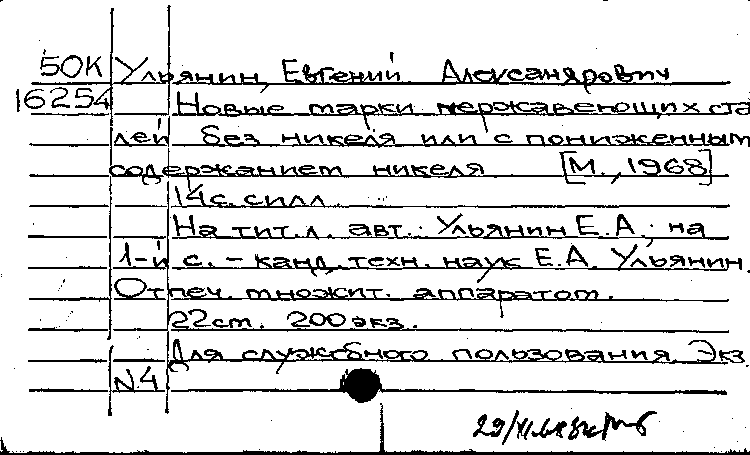 50К Ульянин, Евгений Александрович
16254 Новые марки нержавеющих ста
лей без никеля или с пониженным
содержанием никеля [М., 1968]
14с. с илл
На тит. л. авт.: Ульянин Е.А.; на
1-й с. - канд. техн. наук Е.А. Ульянин.
Отпеч. множит. аппаратом.
22 см. 200 экз.
Для служебного пользования. Экз
N4